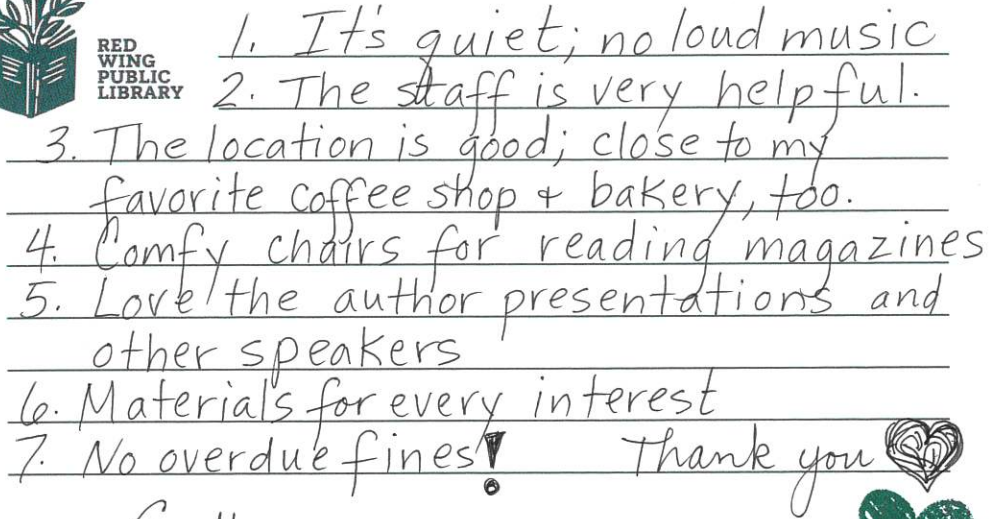 RED
WING
PUBLIC
LIBRARY
1. It's quiet; no loud music
2. The staff is very helpful.
3. The location is good; close to my
favorite coffee shop & bakery, too.
4. Comfy chairs for reading magazines
5. Love the author presentations and
other speakers
6. Materials for every interest
7. No overdue fines! Thank you